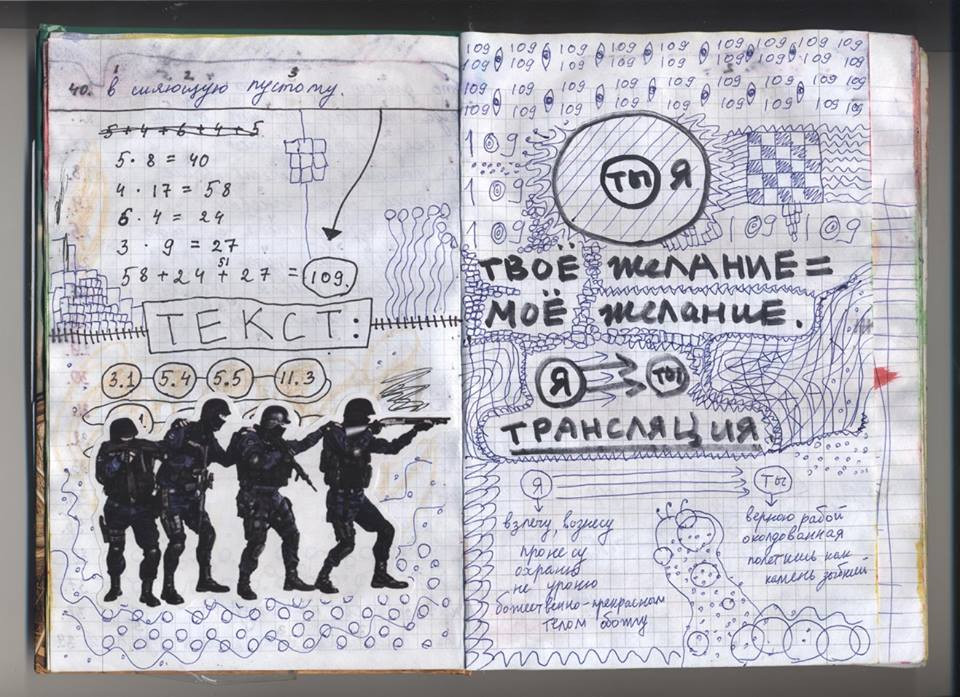 1 2 3
40. в сияющую пустоту.
5+4+6+4+5
5 · 8 = 40
4 · 17 = 58
6 · 4 = 24
3 · 9 = 27
51
58 + 24 + 27 = 109.
ТЕКСТ:
3.1 5.4 5.5 11.3
109 109 109 109 109 109 109 109
109 109 109 109 109 109 109 109
109 109 109 109 109 109 109
109 109 109 109 109 109 109
109
109
109 109 109
ТЫ Я
ТВОЁ ЖЕЛАНИЕ =
МОЁ ЖЕЛАНИЕ.
Я ТЫ
ТРАНСЛЯЦИЯ
Я ТЫ
взлечу, вознесу
пронесу
охраню
не уроню
божественно-прекрасным
телом
верною рабой
околдованная
полетишь как
камень